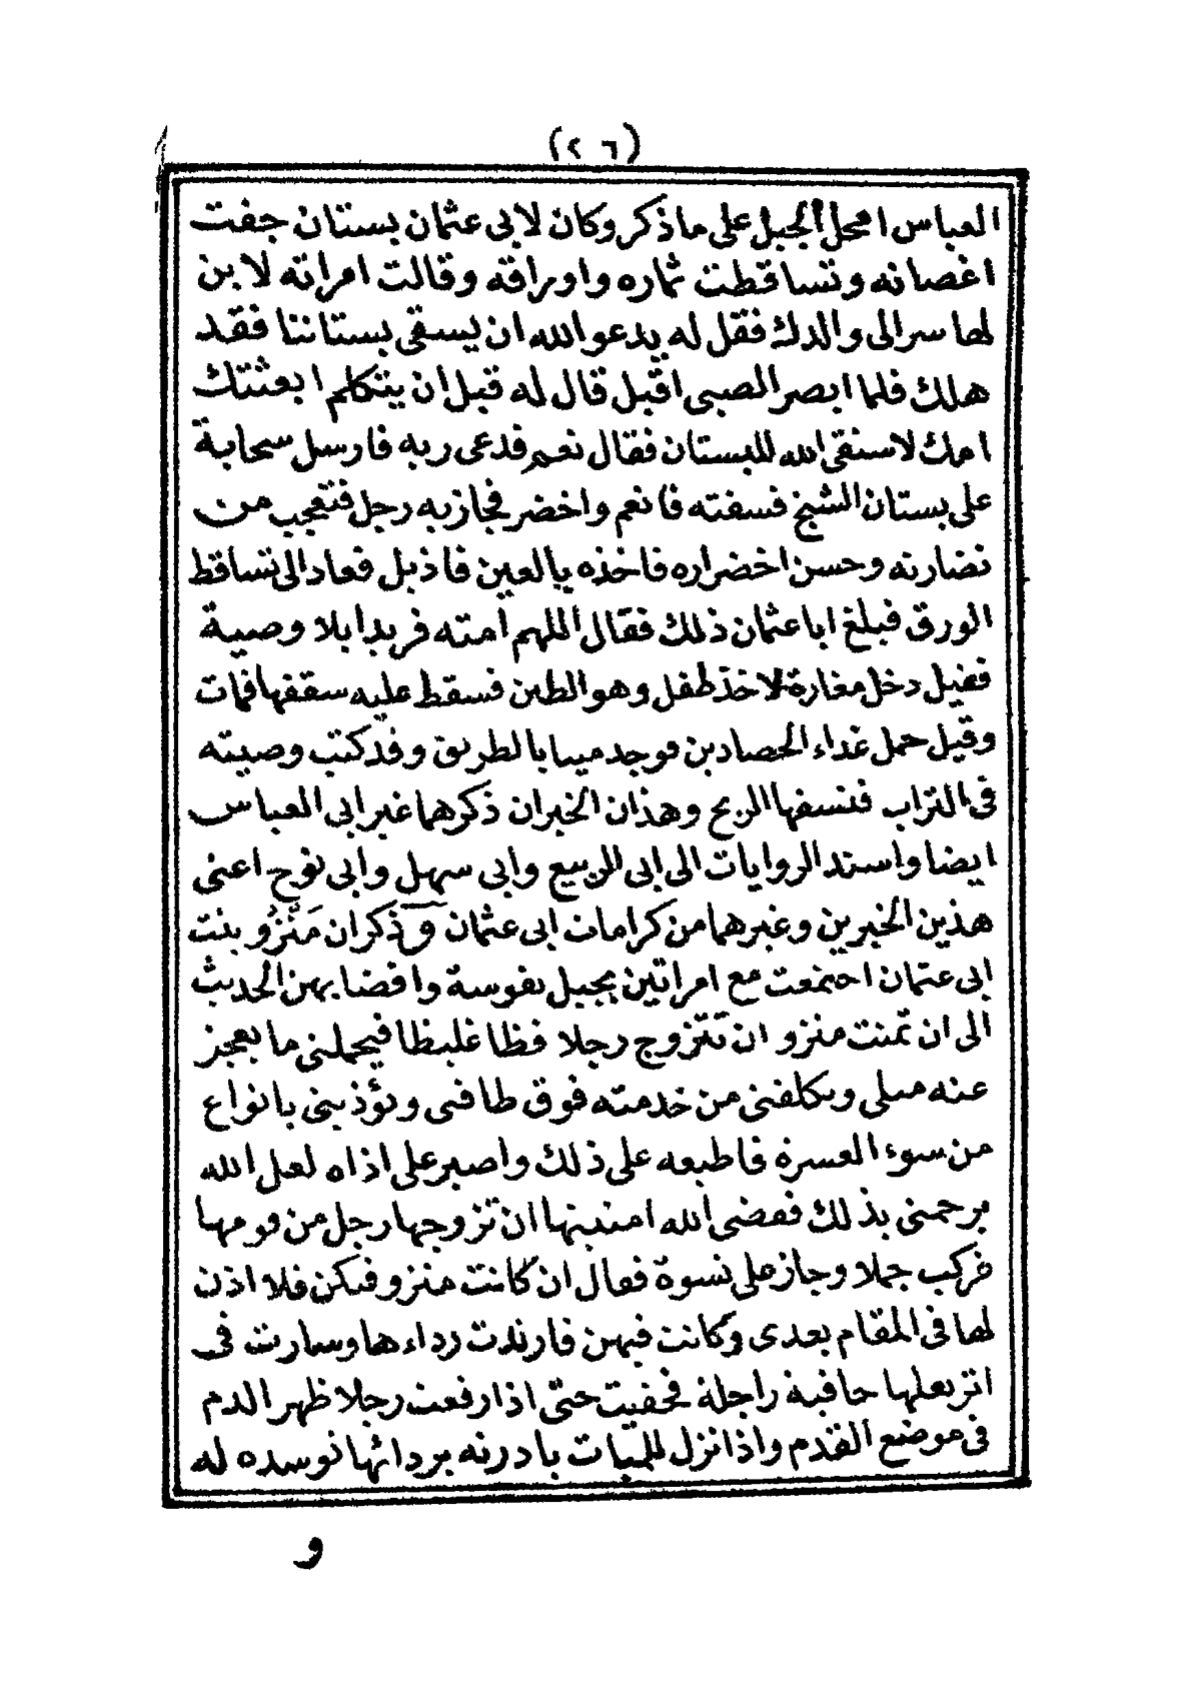 (٢٦)
العباس امحل الجبل على ما ذكر وكان لابى عثمان بستان جفت
اغصانه وتساقطت ثماره واوراقه وقالت امراته لابن
لها سر الى والدك فقل له يدعو الله ان يسقى بستاننا فقد
هلك فلما ابصر الصبى اقبل قال له قبل ان يتكلم ابعثتك
امك لاستقى الله للبستان فقال نعم فدعى ربه فارسل سحابة
على بستان الشيخ فسقته فانعم واخضر فجاز به رجل فتعجب من
نضارته وحسن اخضراره فاخذه بالعين فاذبل فعاد الى تساقط
الورق فبلغ ابا عثمان ذلك فقال اللهم امته فريدا بلا وصية
فقيل دخل مغارة لاخذ طفل وهو الطين فسقط عليه سقفها فمات
وقيل حمل غداء الحصادين فوجد ميتا بالطريق وقد كتب وصيته
فى التراب فنسفها الريح وهذان الخبران ذكرهما غير ابى العباس
ايضا واسند الروايات الى ابى الربيع وابى سهل وابى نوح اعنى
هذين الخبرين وغيرهما من كرامات ابى عثمان وذكر ان مَنْزُو بنت
ابى عثمان اجتمعت مع امراتين بجبل نفوسة وافضا بهن الحديث
الى ان تمنت منزو ان تتزوج رجلا فظا غليظا فيحملنى ما يعجز
عنه مثلى ويكلفنى من خدمته فوق طاقتى ويؤذينى بانواع
من سوء العسرة فاطيعه على ذلك واصبر على اذاه لعل الله
يرحمنى بذلك فقضى الله امنيتها ان تزوجها رجل من قومها
فركب جملا وجاز على نسوة فقال ان كانت منزو فيكن فلا اذن
لها فى المقام بعدى وكانت فيهن فارتدت رداءها وسارت فى
اثر بعلها حافية راجلة فحفيت حتى اذا رفعت رجلا ظهر الدم
فى موضع القدم واذا نزل للمبات بادرته بردائها توسده له
و